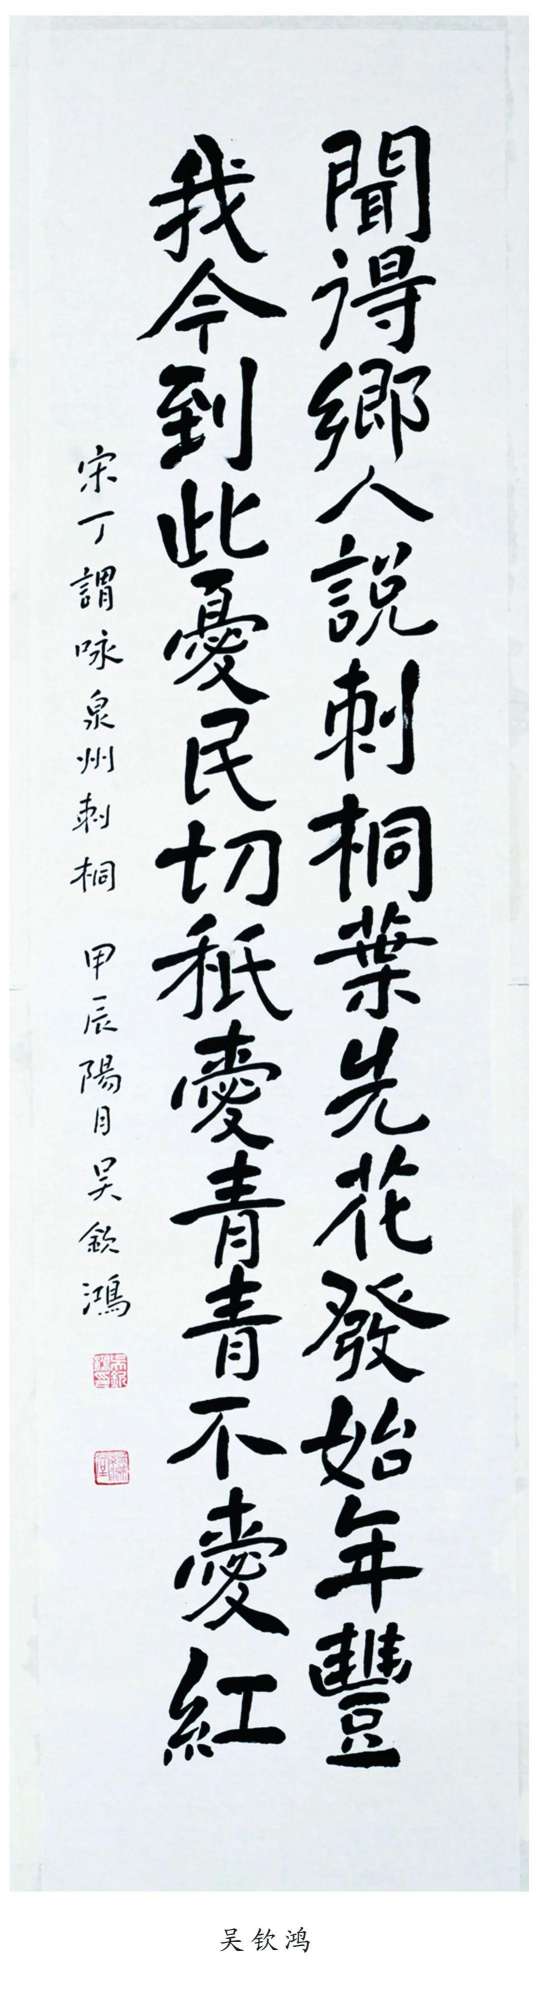 聞得鄉人説刺桐葉先花發始年豐
我今到此憂民切秖愛青青不愛紅
宋丁謂咏泉州刺桐 甲辰陽月吴欽鴻
吴钦鸿